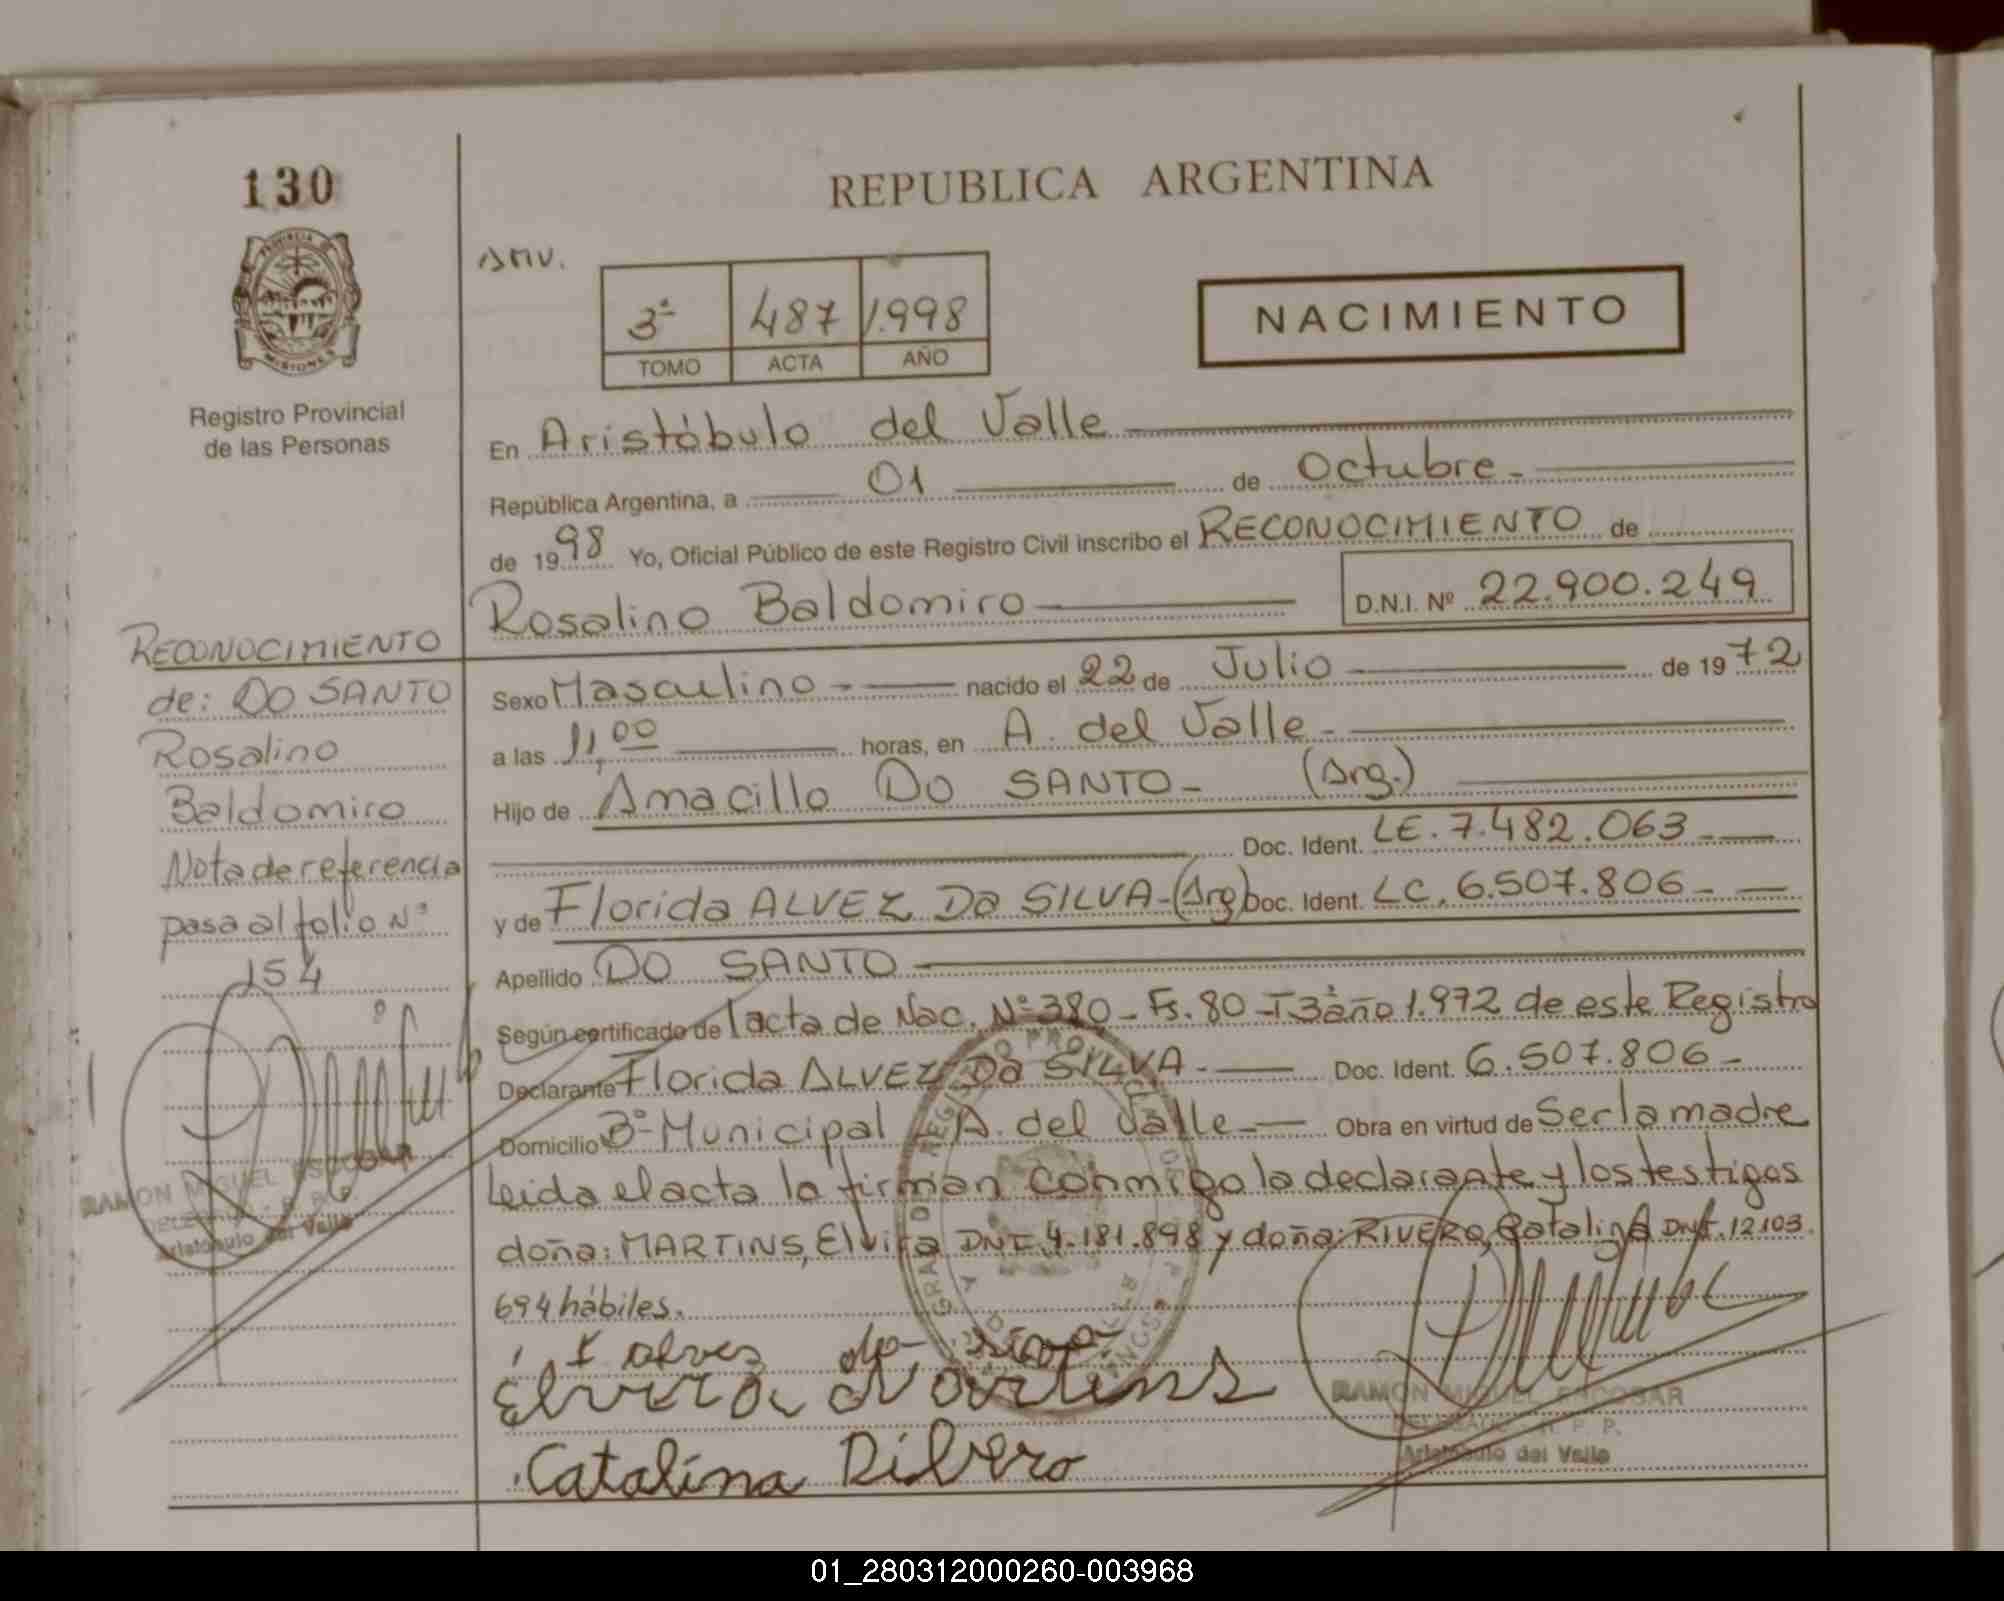 130
REPUBLICA ARGENTINA
PROVINCIA DE
MISIONES
Registro Provincial
de las Personas
3ª 487 1.998
TOMO ACTA AÑO
NACIMIENTO
En Aristóbulo del Valle
República Argentina, a 01 de Octubre.
de 1998 Yo, Oficial Público de este Registro Civil inscribo el RECONOCIMIENTO de
Rosalino Baldomiro D.N.I. Nº 22.900.249
Sexo Masculino nacido el 22 de Julio de 1972
a las 11,00 horas, en A. del Valle
Hijo de Amacillo DO SANTO- (Arg.)
Doc. Ident. LE. 7.482.063
y de Florida ALVEZ DA SILVA-(Arg) Doc. Ident. LC. 6.507.806
Apellido DO SANTO
Según certificado de acta de Nac. Nº 380 - Fs. 80 - T3ª año 1.972 de este Registro
Declarante Florida ALVEZ DA SILVA Doc. Ident. 6.507.806
Domicilio Bº Municipal - A. del Valle Obra en virtud de Ser la madre
Leida el acta la firman conmigo la declarante y los testigos
doña: MARTINS, Elvira DNI. 4.181.898 y doña: RIVERO, Catalina DNI. 12103.
694 hábiles.
F alvez da silva
Elvira Martins
Catalina Ribero
RAMON MIGUEL ESCOBAR
DELEGADO R. P. P.
Aristóbulo del Valle
RECONOCIMIENTO
de: DO SANTO
Rosalino
Baldomiro
Nota de referencia
pasa al folio Nº
154
RAMON MIGUEL ESCOBAR
Aristóbulo del Valle
01_280312000260-003968